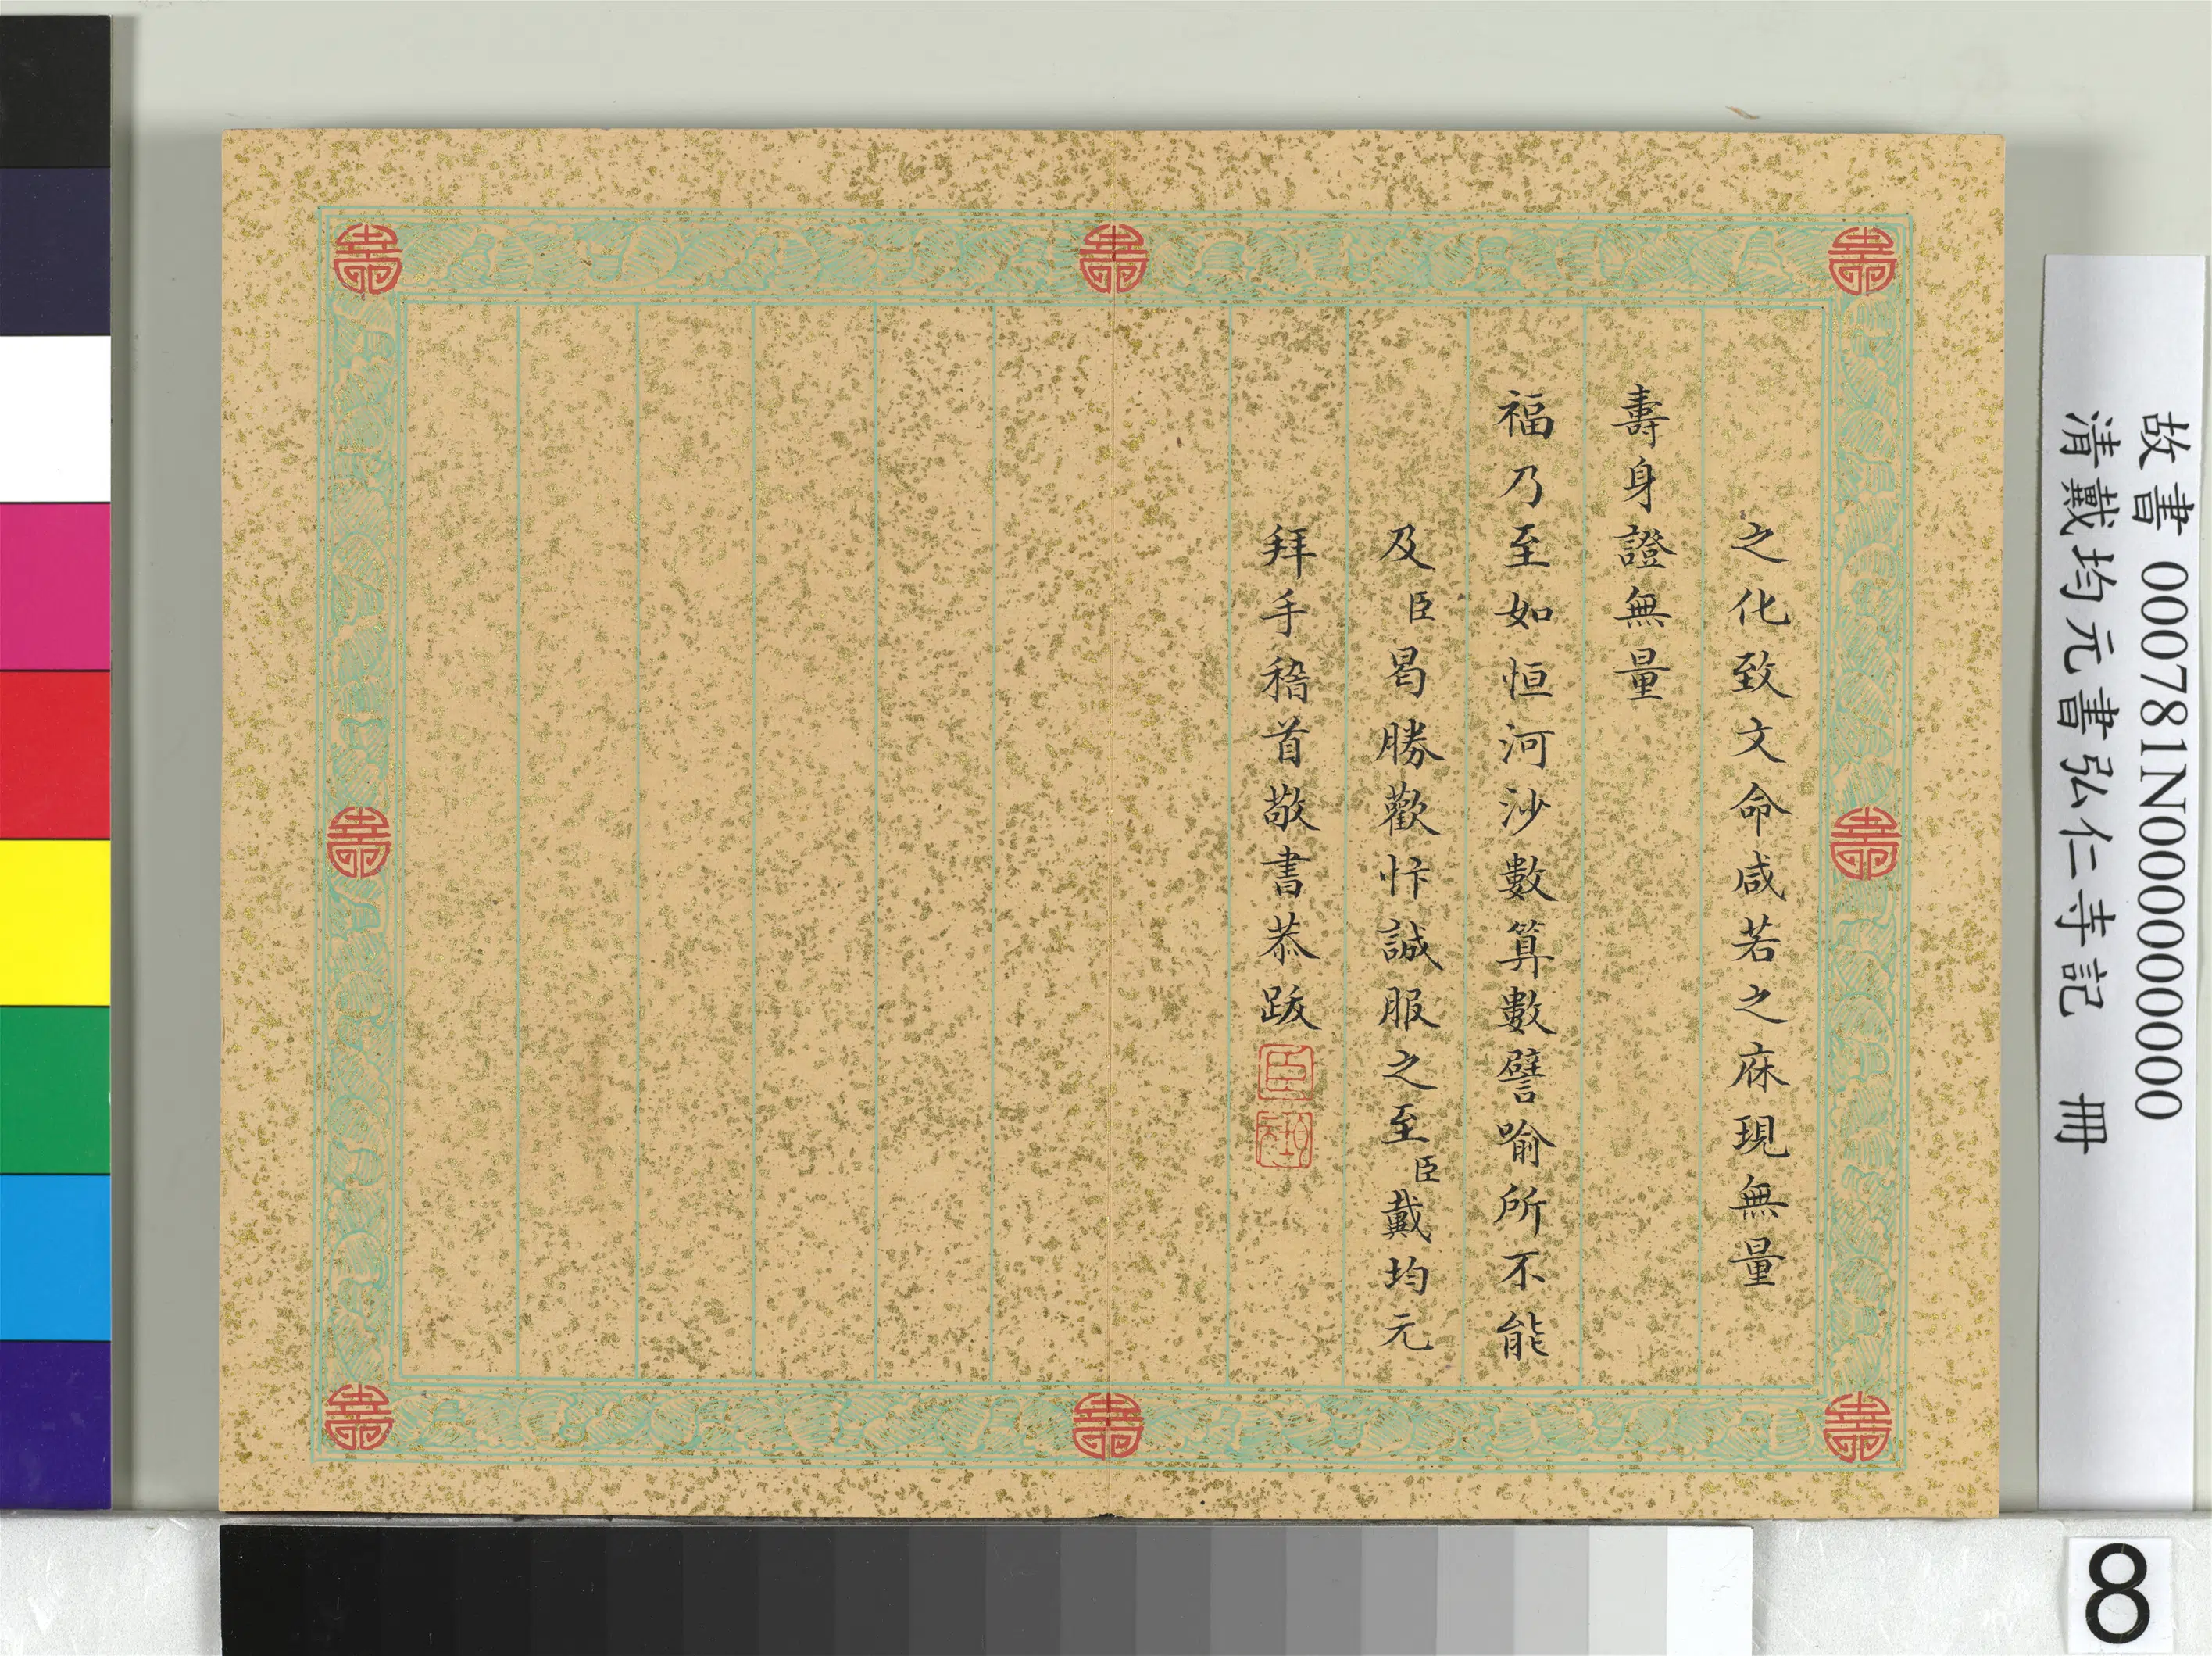 之化致文命咸若之庥現無量
壽身證無量
福乃至如恒河沙數算數譬喻所不能
及臣曷勝歡忭誠服之至臣戴均元
拜手稽首敬書恭跋
故書 000781N000000000
清戴均元書弘仁寺記 冊
8